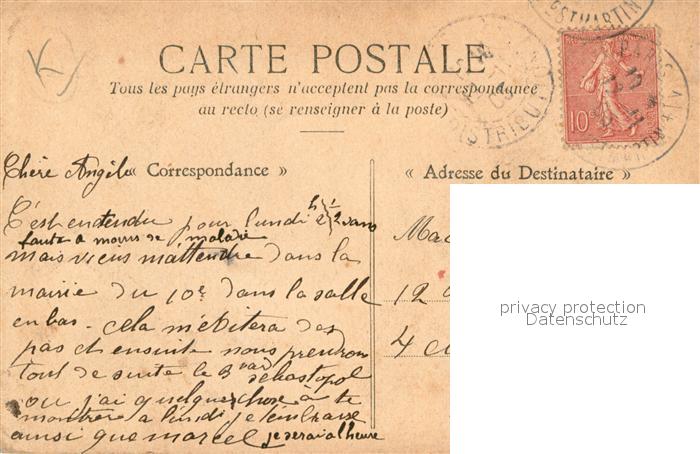 CARTE POSTALE
Tous les pays étrangers n'acceptent pas la correspondance
au recto (se renseigner à la poste)
Chère Angèle
« Correspondance »
« Adresse du Destinataire »
10
C'est entendu pour lundi 2 h 1/2 sans
faute a moins de maladie
mais viens m'attendre dans la
mairie du 10e dans la salle
en bas - cela m'ebitera des
pas et ensuite nous prendrons
tout de suite le Bvard sebastopol
ou j'ai quelque chose à te
montrer a lundi je t'embrasse
ainsi que marcel je serai a l'heure
12
4
privacy protection
Datenschutz